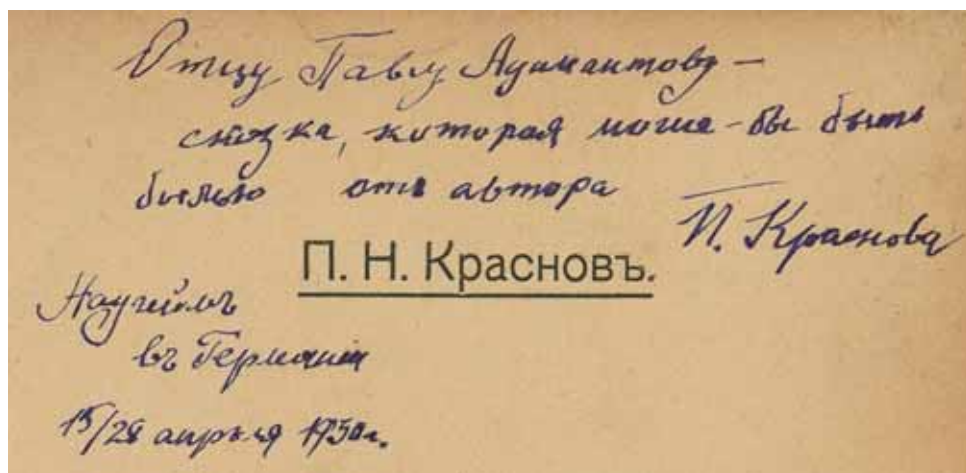 Отцу Павлу —
сказка, которая могла-бы быть
былью отъ автора
П. Краснова
П. Н. Красновъ.
Наугеймъ
въ Германіи
15/28 апрѣля 1930г.